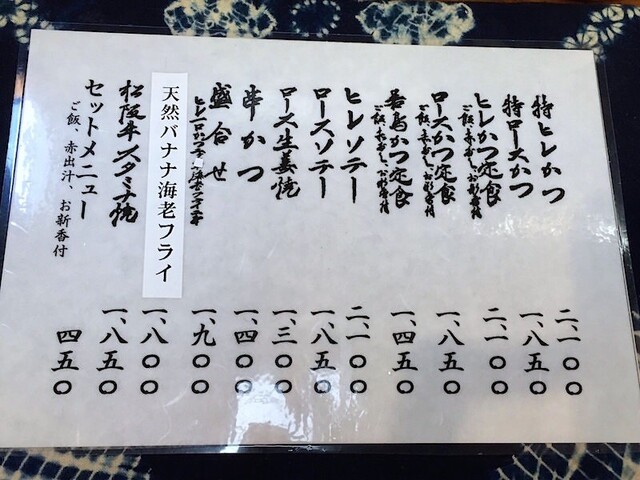 特ヒレかつ 二、一〇〇
特ロースかつ 一、八五〇
ヒレかつ定食 二、一〇〇
ご飯、赤だし、お新香付
ロースかつ定食 一、八五〇
ご飯、赤だし、お新香付
若鳥かつ定食 一、四五〇
ご飯、赤だし、お新香付
ヒレソテー 二、一〇〇
ロースソテー 一、八五〇
ロース生姜焼 一、三〇〇
串かつ 一、四〇〇
盛合せ 一、九〇〇
天然バナナ海老フライ 一、八〇〇
松阪牛スタミナ焼 一、八五〇
セットメニュー 四五〇
ご飯、赤出汁、お新香付